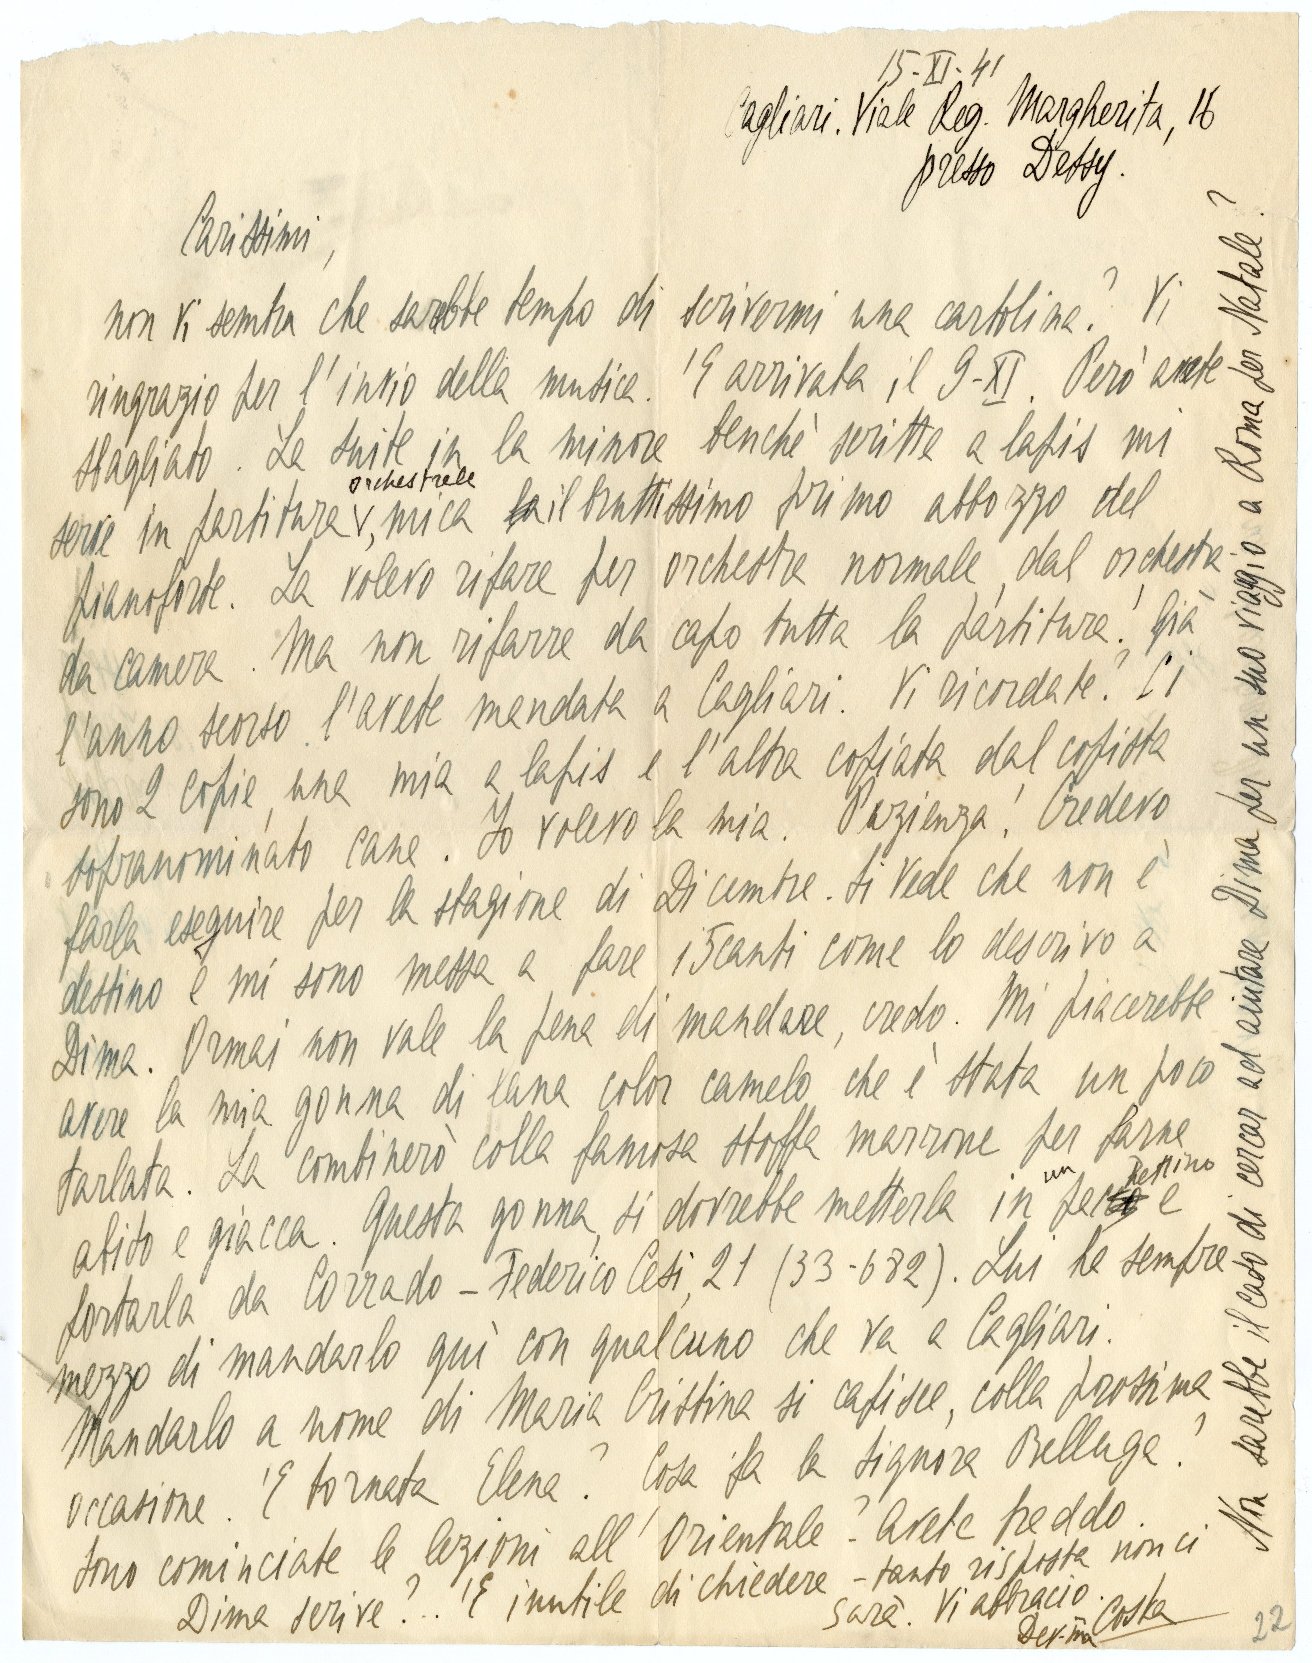 15-XI-41
Cagliari. Viale Reg. Margherita, 16
presso Dessy.
Carissimi,
non vi sembra che sarebbe tempo di scrivermi una cartolina? Vi
ringrazio per l'invio della musica. 'E arrivata il 9-XI. Però avete
sbagliato. La suite in la minore benchè scritta a lapis mi
serve in partitura orchestrale, mica il bruttissimo primo abbozzo del
pianoforte. La volevo rifare per orchestra normale, dal orchestra
da camera. Ma non rifarre da capo tutta la partitura! Già
l'anno scorso l'avete mandata a Cagliari. Vi ricordate? Ci
sono 2 copie, una mia a lapis e l'altra copiata dal copista
sopranominato cane. Io volevo la mia. Pazienza! Credevo
farla eseguire per la stagione di Dicembre. Si vede che non è
destino e mi sono messa a fare i 5 canti come lo descrivo a
Dima. Ormai non vale la pena di mandare, credo. Mi piacerebbe
avere la mia gonna di lana color camelo che è stata un poco
tarlata. La combinerò colla famosa stoffa marrone per farne
abito e giacca. Questa gonna, si dovrebbe metterla in un pacchettino e
portarla da Corrado - Federico Cesi, 21 (33-682). Lui ha sempre
mezzo di mandarlo quì con qualcuno che va a Cagliari.
Mandarlo a nome di Maria Cristina si capisce, colla prossima
occasione. 'E tornata Elena? Cosa fa la signora Belluga?
Sono cominciate le lezioni all'Orientale? Avete freddo.
Dima scrive?.. 'E inutile di chiedere - tanto risposta non ci
sarà. Vi abbracio.
Dev-ma Costa
Non sarebbe il caso di cercar ad aiutare Dima per un suo viaggio a Roma per Natale?
22